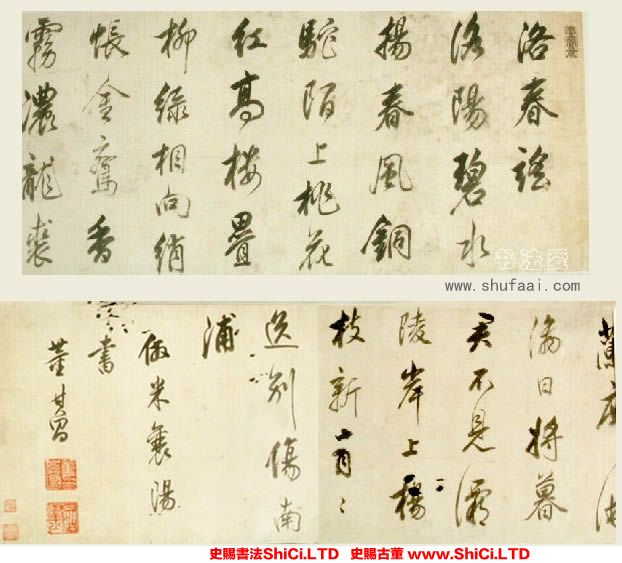 洛春謠
洛陽碧水
揚春風銅
駝陌上桃花
紅高樓疊
柳綠相向綃
帳金鸞香
霧濃龍裘
书法爱
www.shufaai.com
蘭
日將暮
君不見灞
陵岸上楊
枝新
送別傷南
浦
倣米襄陽
書
董其昌
史賜書法ShiCi.LTD 史賜古董 www.ShiCi.LTD